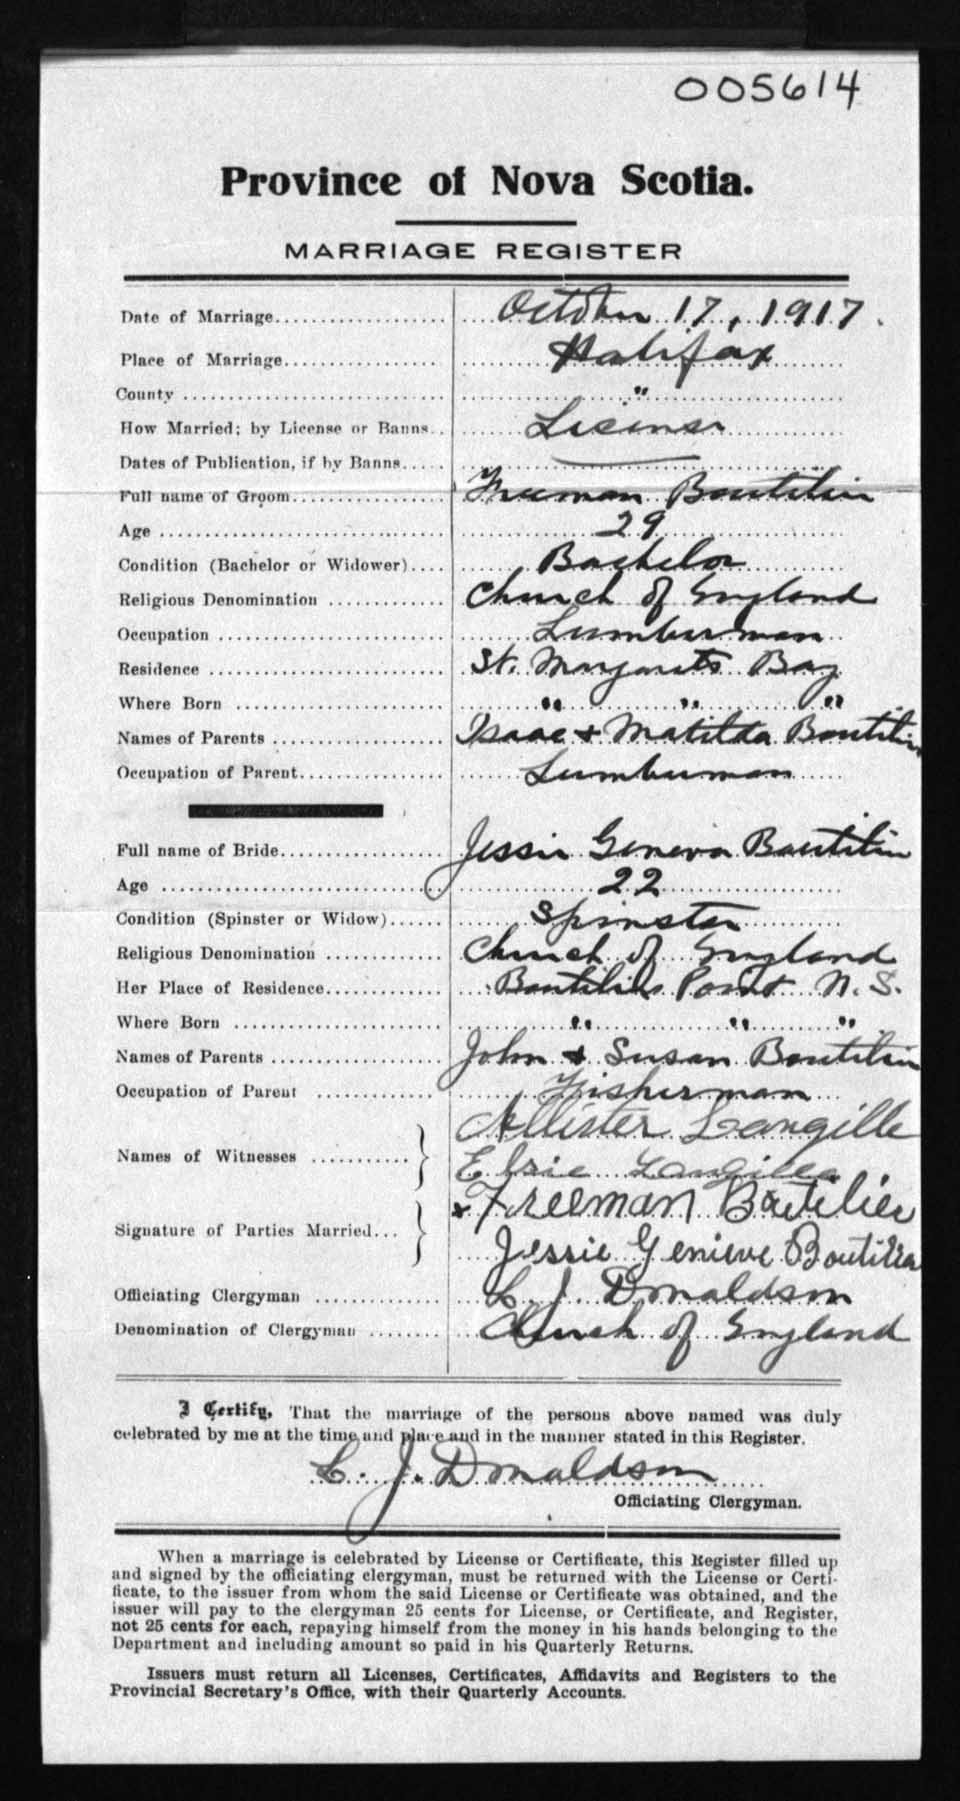 005614
Province of Nova Scotia.
MARRIAGE REGISTER
Date of Marriage.................... October 17, 1917.
Place of Marriage................... Halifax
County .............................. "
How Married; by License or Banns.. License
Dates of Publication, if by Banns.....
Full name of Groom.................. Freeman Boutilier
Age ................................. 29
Condition (Bachelor or Widower).... Bachelor
Religious Denomination ............. Church of England
Occupation .......................... Lumberman
Residence ........................... St. Margarets Bay
Where Born ........................ " " "
Names of Parents .................... Isaac + Matilda Boutilier
Occupation of Parent................. Lumberman
Full name of Bride................... Jessie Geneva Boutilier
Age ................................. 22
Condition (Spinster or Widow)...... Spinster
Religious Denomination .............. Church of England
Her Place of Residence.............. Boutiliers Point N. S.
Where Born ......................... " " "
Names of Parents .................... John + Susan Boutilier
Occupation of Parent .............. Fisherman
Allister Langille
Names of Witnesses ...........
Elsie Langille
x Freeman Boutilier
Signature of Parties Married...
Jessie Genieve Boutilier
Officiating Clergyman .............. C. J. Donaldson
Denomination of Clergyman ........ Church of England
I Certify, That the marriage of the persons above named was duly
celebrated by me at the time and place and in the manner stated in this Register.
C. J. Donaldson
Officiating Clergyman.
When a marriage is celebrated by License or Certificate, this Register filled up
and signed by the officiating clergyman, must be returned with the License or Certi-
ficate, to the issuer from whom the said License or Certificate was obtained, and the
issuer will pay to the clergyman 25 cents for License, or Certificate, and Register,
not 25 cents for each, repaying himself from the money in his hands belonging to the
Department and including amount so paid in his Quarterly Returns.
Issuers must return all Licenses, Certificates, Affidavits and Registers to the
Provincial Secretary's Office, with their Quarterly Accounts.